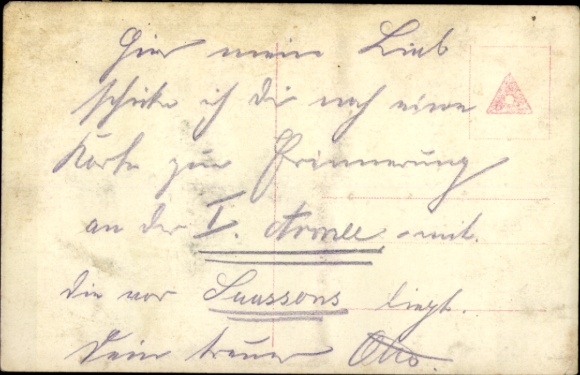 Hier mein Lieb
schicke ich dir noch eine
Karte zur Erinnerung
an der I. Armee mit.
die vor Suassons liegt.
Dein treuer Otto